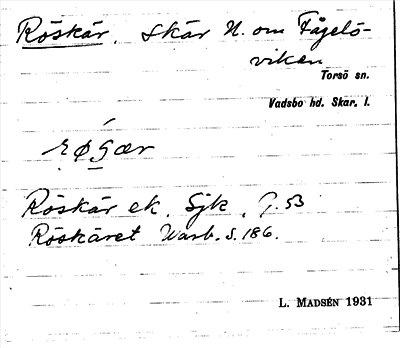 Röskär, skär N. om Fågelö-
viken
Torsö sn.
Vadsbo hd. Skar. l.
Röskär ek. Sjk, 9.53
Röskäret Warb. S. 186.
L. MADSÉN 1931